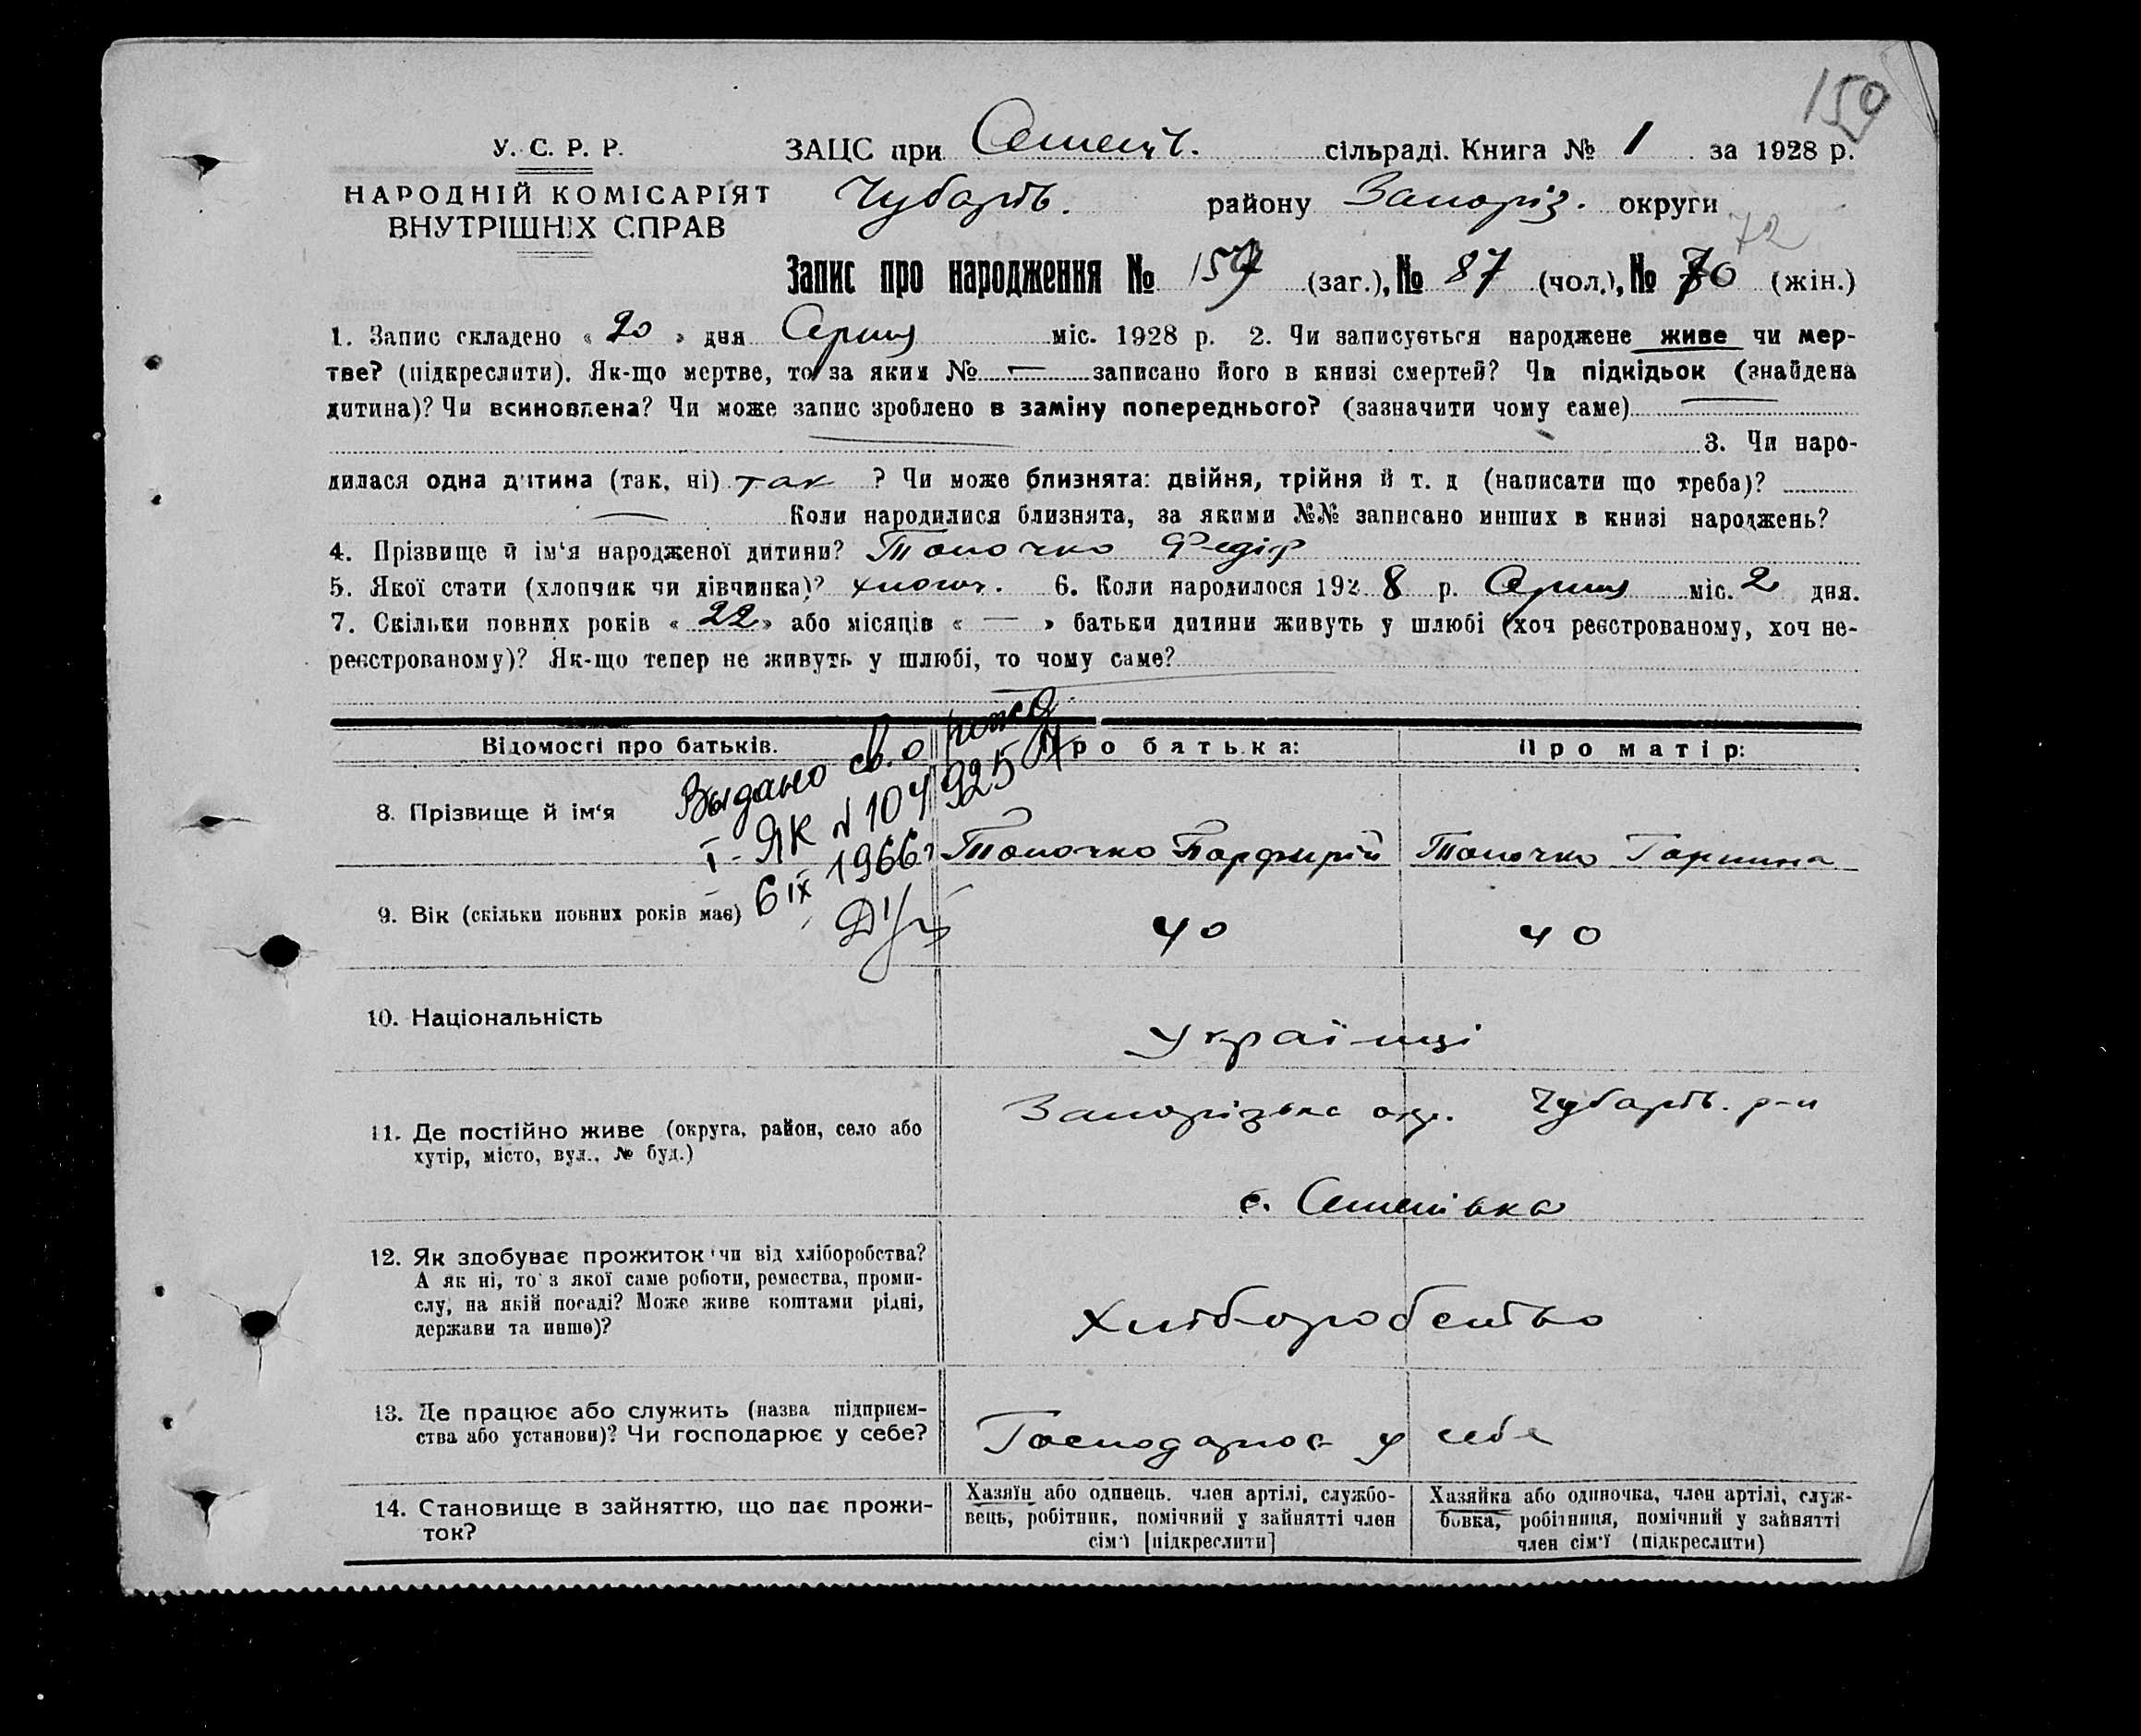 159
У. С. Р. Р.
НАРОДНІЙ КОМІСАРІЯТ
ВНУТРІШНІХ СПРАВ
ЗАЦС при Семенів. сільраді. Книга № 1 за 1928 р.
Чубарів. району Запоріз. округи
72
Запис про народження № 159 (заг.), № 87 (чол.), № 70 (жін.)
1. Запис складено « 20 » дня Серпня міс. 1928 р. 2. Чи записується народжене живе чи мер-
тве? (підкреслити). Як-що мертве, то за яким № — записано його в книзі смертей? Чи підкідьок (знайдена
дитина)? Чи всиновлена? Чи може запис зроблено в заміну попереднього? (зазначити чому саме) —
— 3. Чи наро-
дилася одна дитина (так, ні) так ? Чи може близнята: двійня, трійня й т. д (написати що треба)?
— Коли народилися близнята, за якими №№ записано инших в книзі народжень?
4. Прізвище й ім‘я народженої дитини? Топочко Федір
5. Якої стати (хлопчик чи дівчинка)? хлопч. 6. Коли народилося 192 8 р. Серпня міс. 2 дня.
7. Скільки повних років « 22 » або місяців « — » батьки дитини живуть у шлюбі (хоч реєстрованому, хоч не-
реєстрованому)? Як-що тепер не живуть у шлюбі, то чому саме?
—
Відомості про батьків. Про батька: Про матір:
Выдано св. о рожд
I-ЯК № 104925
6 IX 1966г
8. Прізвище й ім‘я Топочко Парфирій Топочко Горпина
9. Вік (скільки повних років має) 40 40
10. Національність Українці
11. Де постійно живе (округа, район, село або
хутір, місто, вул., № буд.)
Запорізька окр. Чубарів. р-н
с. Семенівка
12. Як здобуває прожиток чи від хліборобства?
А як ні, то з якої саме роботи, ремества, проми-
слу, на якій посаді? Може живе коштами рідні,
держави та инше)?
Хліборобство
13. Де працює або служить (назва підприєм-
ства або установи)? Чи господарює у себе?
Господарює у себе
14. Становище в зайняттю, що дає прожи-
ток?
Хазяїн або одинець, член артілі, службо-
вець, робітник, помічний у зайнятті член
сім‘ї [підкреслити]
Хазяйка або одиночка, член артілі, служ-
бовка, робітниця, помічний у зайнятті
член сім‘ї (підкреслити)